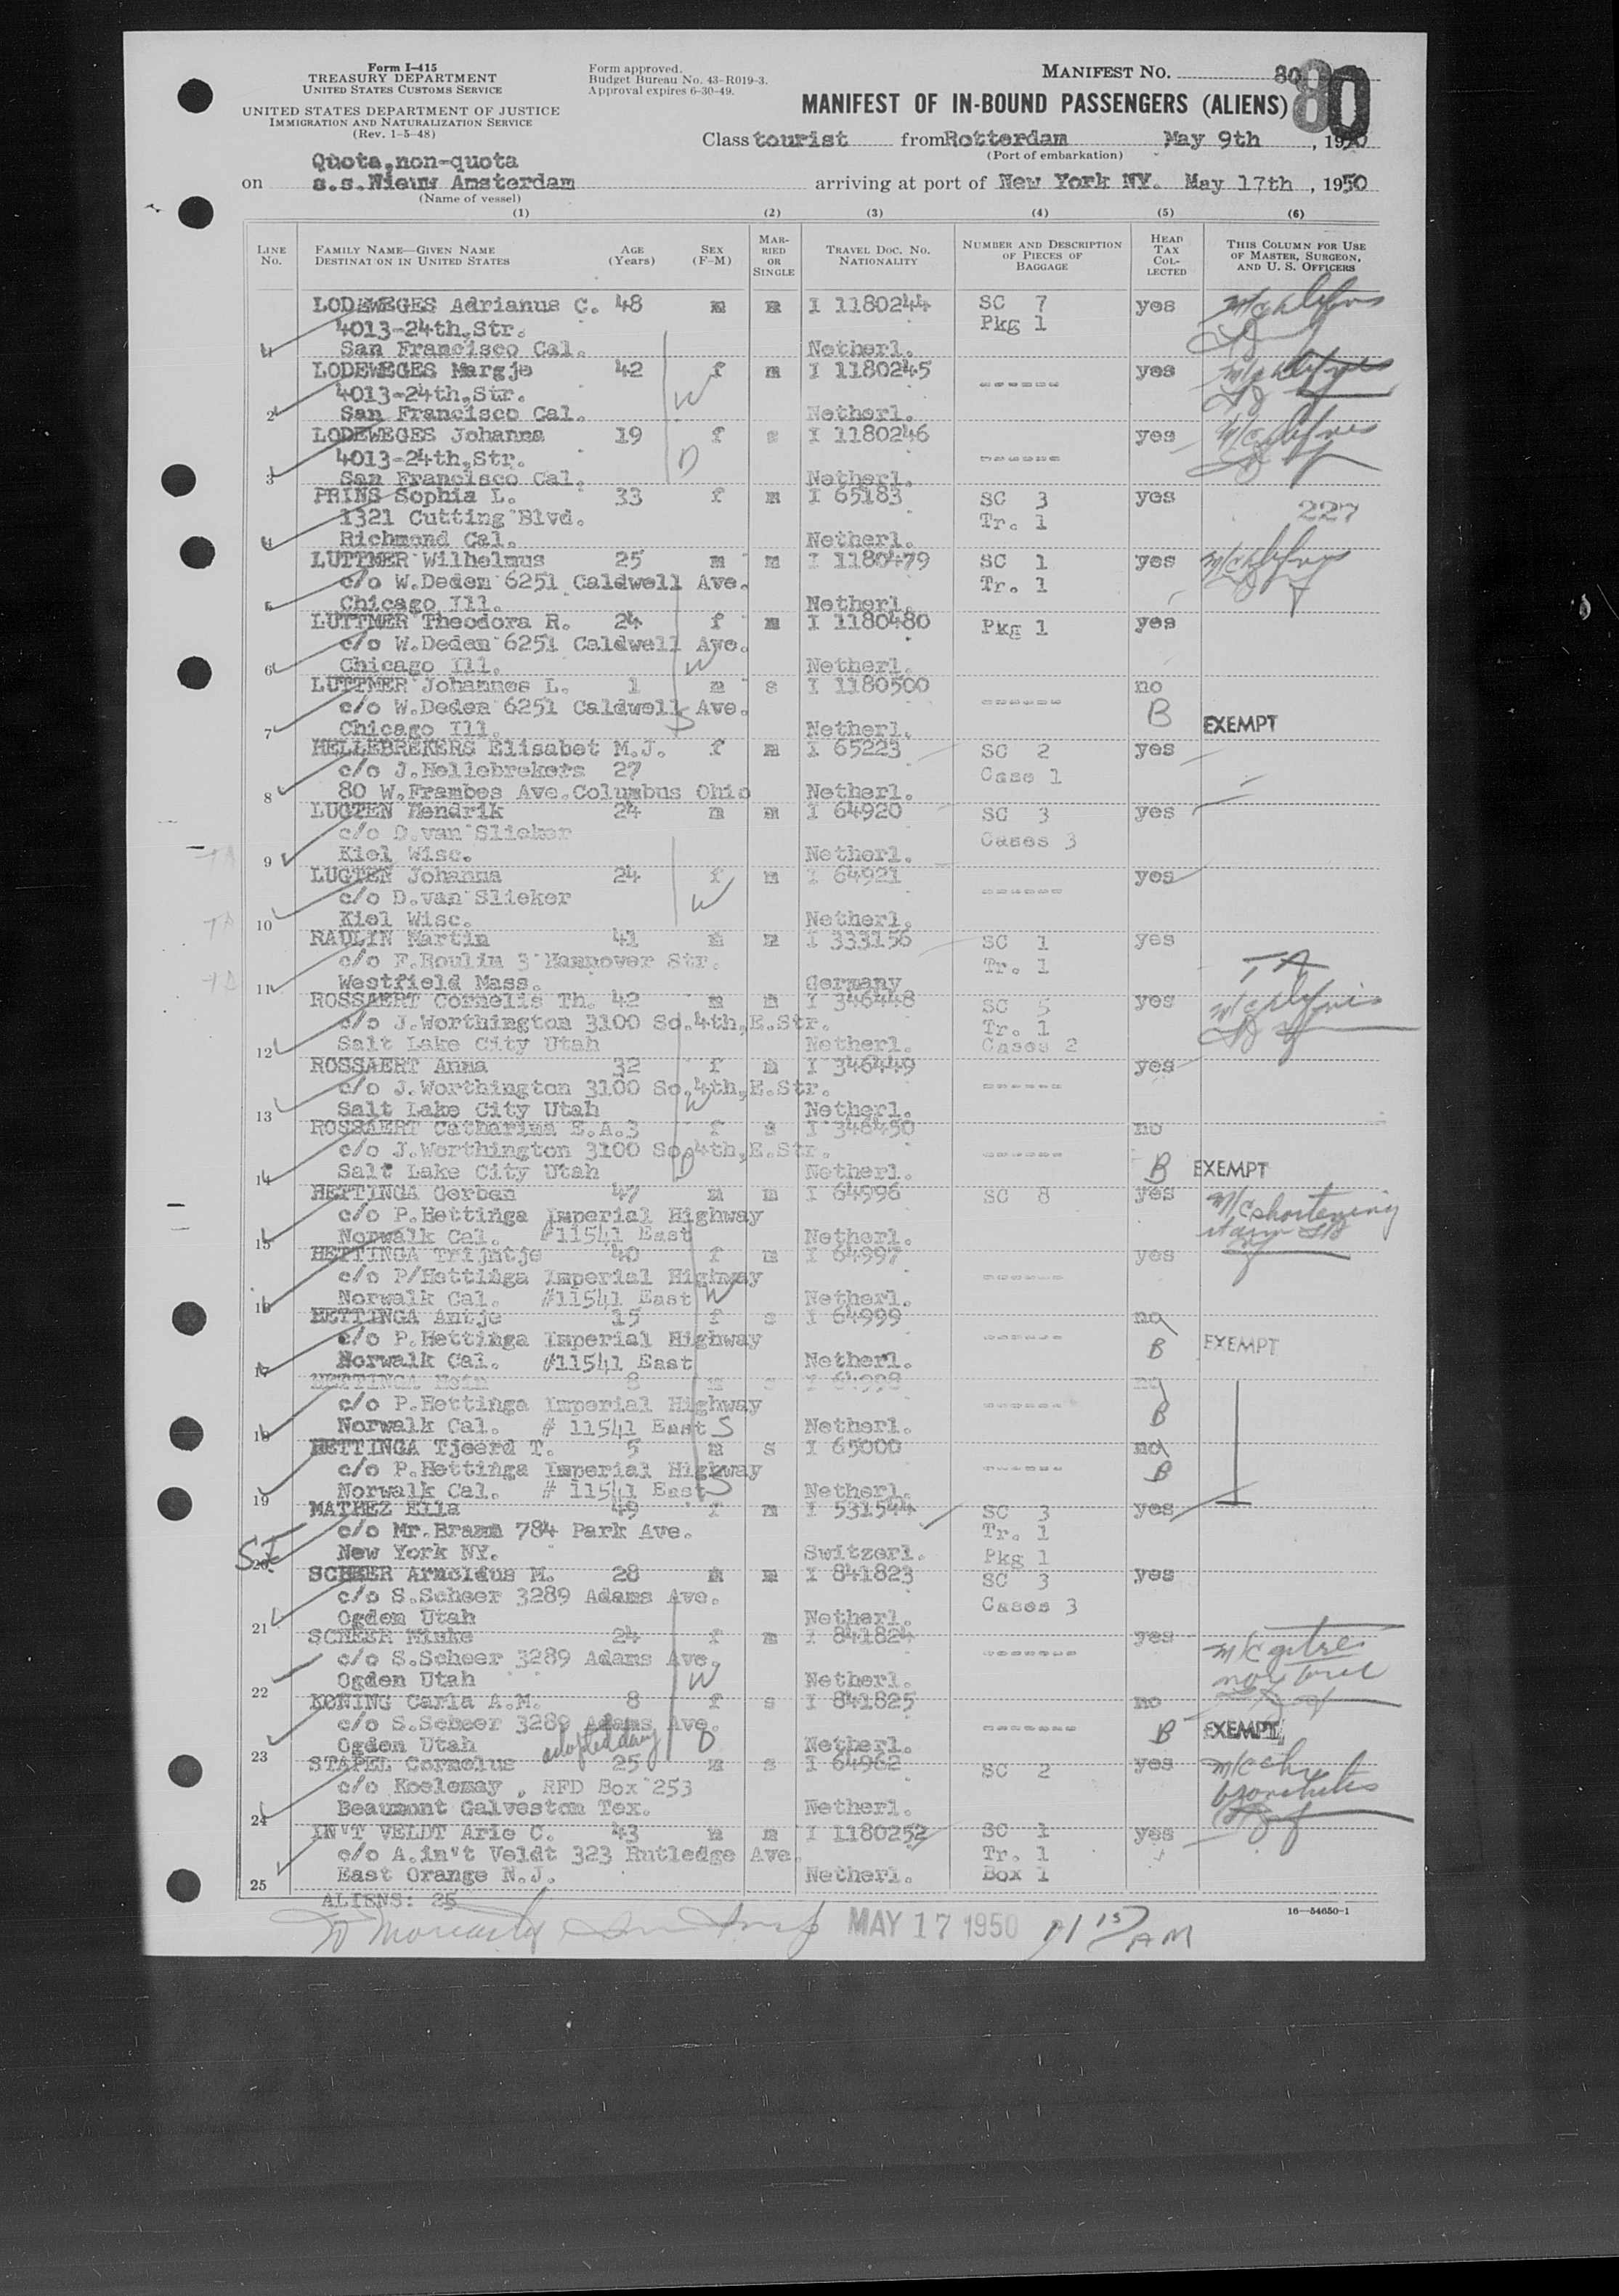 Form I-415
TREASURY DEPARTMENT
UNITED STATES CUSTOMS SERVICE
UNITED STATES DEPARTMENT OF JUSTICE
IMMIGRATION AND NATURALIZATION SERVICE
(Rev. 1-5-48)
Form approved.
Budget Bureau No. 43-R019-3.
Approval expires 6-30-49.
MANIFEST NO. 80
80
MANIFEST OF IN-BOUND PASSENGERS (ALIENS)
Class tourist from Rotterdam May 9th, 1950
(Port of embarkation)
Quota, non-quota
on s.s. Nieuw Amsterdam arriving at port of New York NY. May 17th, 1950
(Name of vessel)
(1) (2) (3) (4) (5) (6)
LINE No. FAMILY NAME—GIVEN NAME DESTINATION IN UNITED STATES AGE (Years) SEX (F-M) MARRIED OR SINGLE TRAVEL DOC. NO. NATIONALITY NUMBER AND DESCRIPTION OF PIECES OF BAGGAGE HEAD TAX COLLECTED THIS COLUMN FOR USE OF MASTER, SURGEON, AND U. S. OFFICERS
LODEWEGES Adrianus C. 48 m m I 1180244 SC 7 yes
4013-24th.Str. Pkg 1
1 San Francisco Cal. Netherl.
LODEWEGES Margje 42 f m I 1180245 ------ yes
4013-24th.Str. W
2 San Francisco Cal. Netherl.
LODEWEGES Johanna 19 f s I 1180246 ------ yes
4013-24th.Str. D
3 San Francisco Cal. Netherl.
PRINS Sophia L. 33 f m I 65183 SC 3 yes 227
1321 Cutting Blvd. Tr. 1
4 Richmond Cal. Netherl.
LUTTMER Wilhelmus 25 m m I 1180479 SC 1 yes
c/o W.Deden 6251 Caldwell Ave. Tr. 1
5 Chicago Ill. Netherl.
LUTTMER Theodora R. 24 f m I 1180480 Pkg 1 yes
c/o W.Deden 6251 Caldwell Ave.
6 Chicago Ill. W Netherl.
LUTTMER Johannes L. 1 m s I 1180500 ------ no
c/o W.Deden 6251 Caldwell Ave. S B EXEMPT
7 Chicago Ill. Netherl.
HELLEBREKERS Elisabet M.J. f m I 65223 SC 2 yes
c/o J.Hellebrekers 27 Case 1
8 80 W.Frambes Ave.Columbus Ohio Netherl.
LUGTEN Hendrik 24 m m I 64920 SC 3 yes
c/o D.van Slieker Cases 3
TA 9 Kiel Wisc. Netherl.
LUGTEN Johanna 24 f m I 64921 ------ yes
c/o D.van Slieker W
TA 10 Kiel Wisc. Netherl.
RAULIN Martin 41 m m I 333156 SC 1 yes
c/o F.Roulin 3 Hannover Str. Tr. 1 TA
TA 11 Westfield Mass. Germany
ROSSAERT Cornelis Th. 42 m m I 346448 SC 5 yes
c/o J.Worthington 3100 So.4th,E.Str. Tr. 1
12 Salt Lake City Utah Netherl. Cases 2
ROSSAERT Anna 32 f m I 346449 ------ yes
c/o J.Worthington 3100 So.4th,E.Str.
13 Salt Lake City Utah W Netherl.
ROSSAERT Catharina E.A. 3 f s I 346450 ------ no
c/o J.Worthington 3100 So.4th,E.Str.
14 Salt Lake City Utah D Netherl. B EXEMPT
HETTINGA Gerben 47 m m I 64996 SC 8 yes m/c shortening
c/o P.Hettinga Imperial Highway
15 Norwalk Cal. #11541 East Netherl.
HETTINGA Trijntje 40 f m I 64997 ------ yes
c/o P/Hettinga Imperial Highway
16 Norwalk Cal. #11541 East W Netherl.
HETTINGA Antje 15 f s I 64999 ------ no
c/o P.Hettinga Imperial Highway B EXEMPT
17 Norwalk Cal. #11541 East Netherl.
HETTINGA Hein 8 m s I 64998 ------ no
c/o P.Hettinga Imperial Highway B
18 Norwalk Cal. # 11541 East S Netherl.
HETTINGA Tjeerd T. 5 m s I 65000 ------ no
c/o P.Hettinga Imperial Highway B
19 Norwalk Cal. # 11541 East S Netherl.
MATHEZ Ella 49 f m I 531544 SC 3 yes
c/o Mr.Bramm 784 Park Ave. Tr. 1
SI 20 New York NY. Switzerl. Pkg 1
SCHEER Arnoldus M. 28 m m I 841823 SC 3 yes
c/o S.Scheer 3289 Adams Ave. Cases 3
21 Ogden Utah Netherl.
SCHEER Minke 24 f m I 841824 ------- yes
c/o S.Scheer 3289 Adams Ave.
22 Ogden Utah W Netherl.
KONING Carla A.M. 8 f s I 841825 ------- no
c/o S.Scheer 3289 Adams Ave. B EXEMPT
23 Ogden Utah adopted dau D Netherl.
STAPEL Cornelus 25 m s I 64962 SC 2 yes m/c chr
c/o Koelemay , RFD Box 253 bronchitis
24 Beaumont Galveston Tex. Netherl.
IN'T VELDT Arie C. 43 m m I 1180252 SC 1 yes
c/o A.in't Veldt 323 Rutledge Ave. Tr. 1
25 East Orange N.J. Netherl. Box 1
ALIENS: 25
16—54650-1
MAY 17 1950 11 15 AM